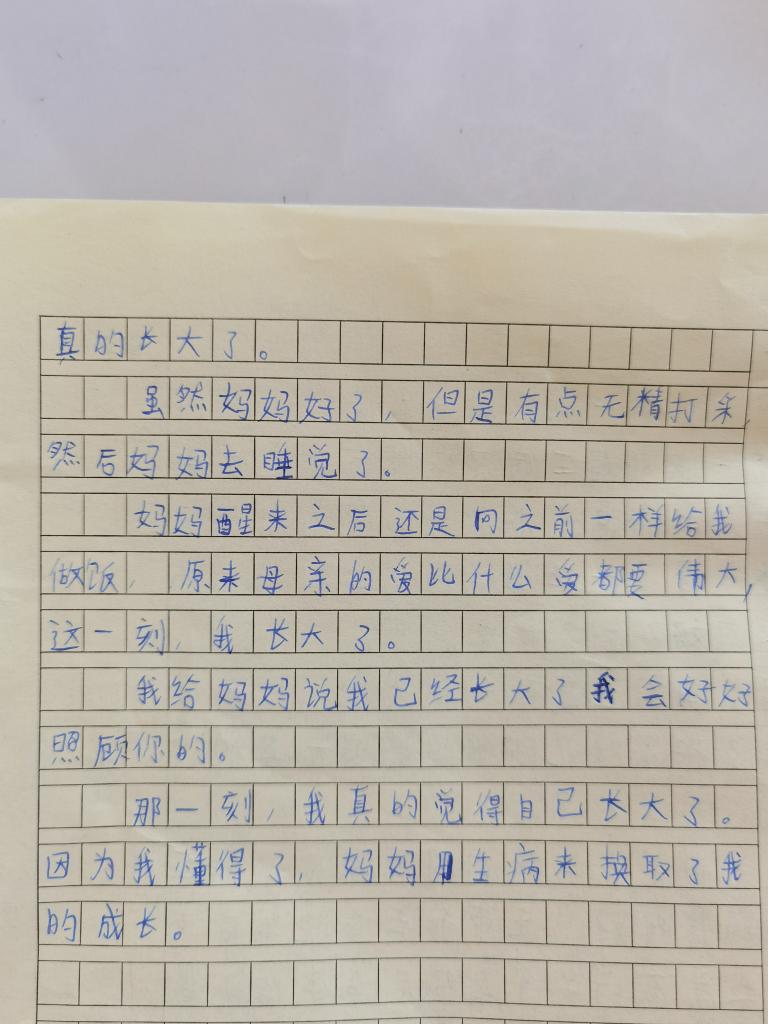 真的长大了。
虽然妈妈好了，但是有点无精打采，
然后妈妈去睡觉了。
妈妈醒来之后还是同之前一样给我
做饭，原来母亲的爱比什么爱都要伟大，
这一刻，我长大了。
我给妈妈说我已经长大了我会好好
照顾你的。
那一刻，我真的觉得自己长大了。
因为我懂得了，妈妈用生病来换取了我
的成长。